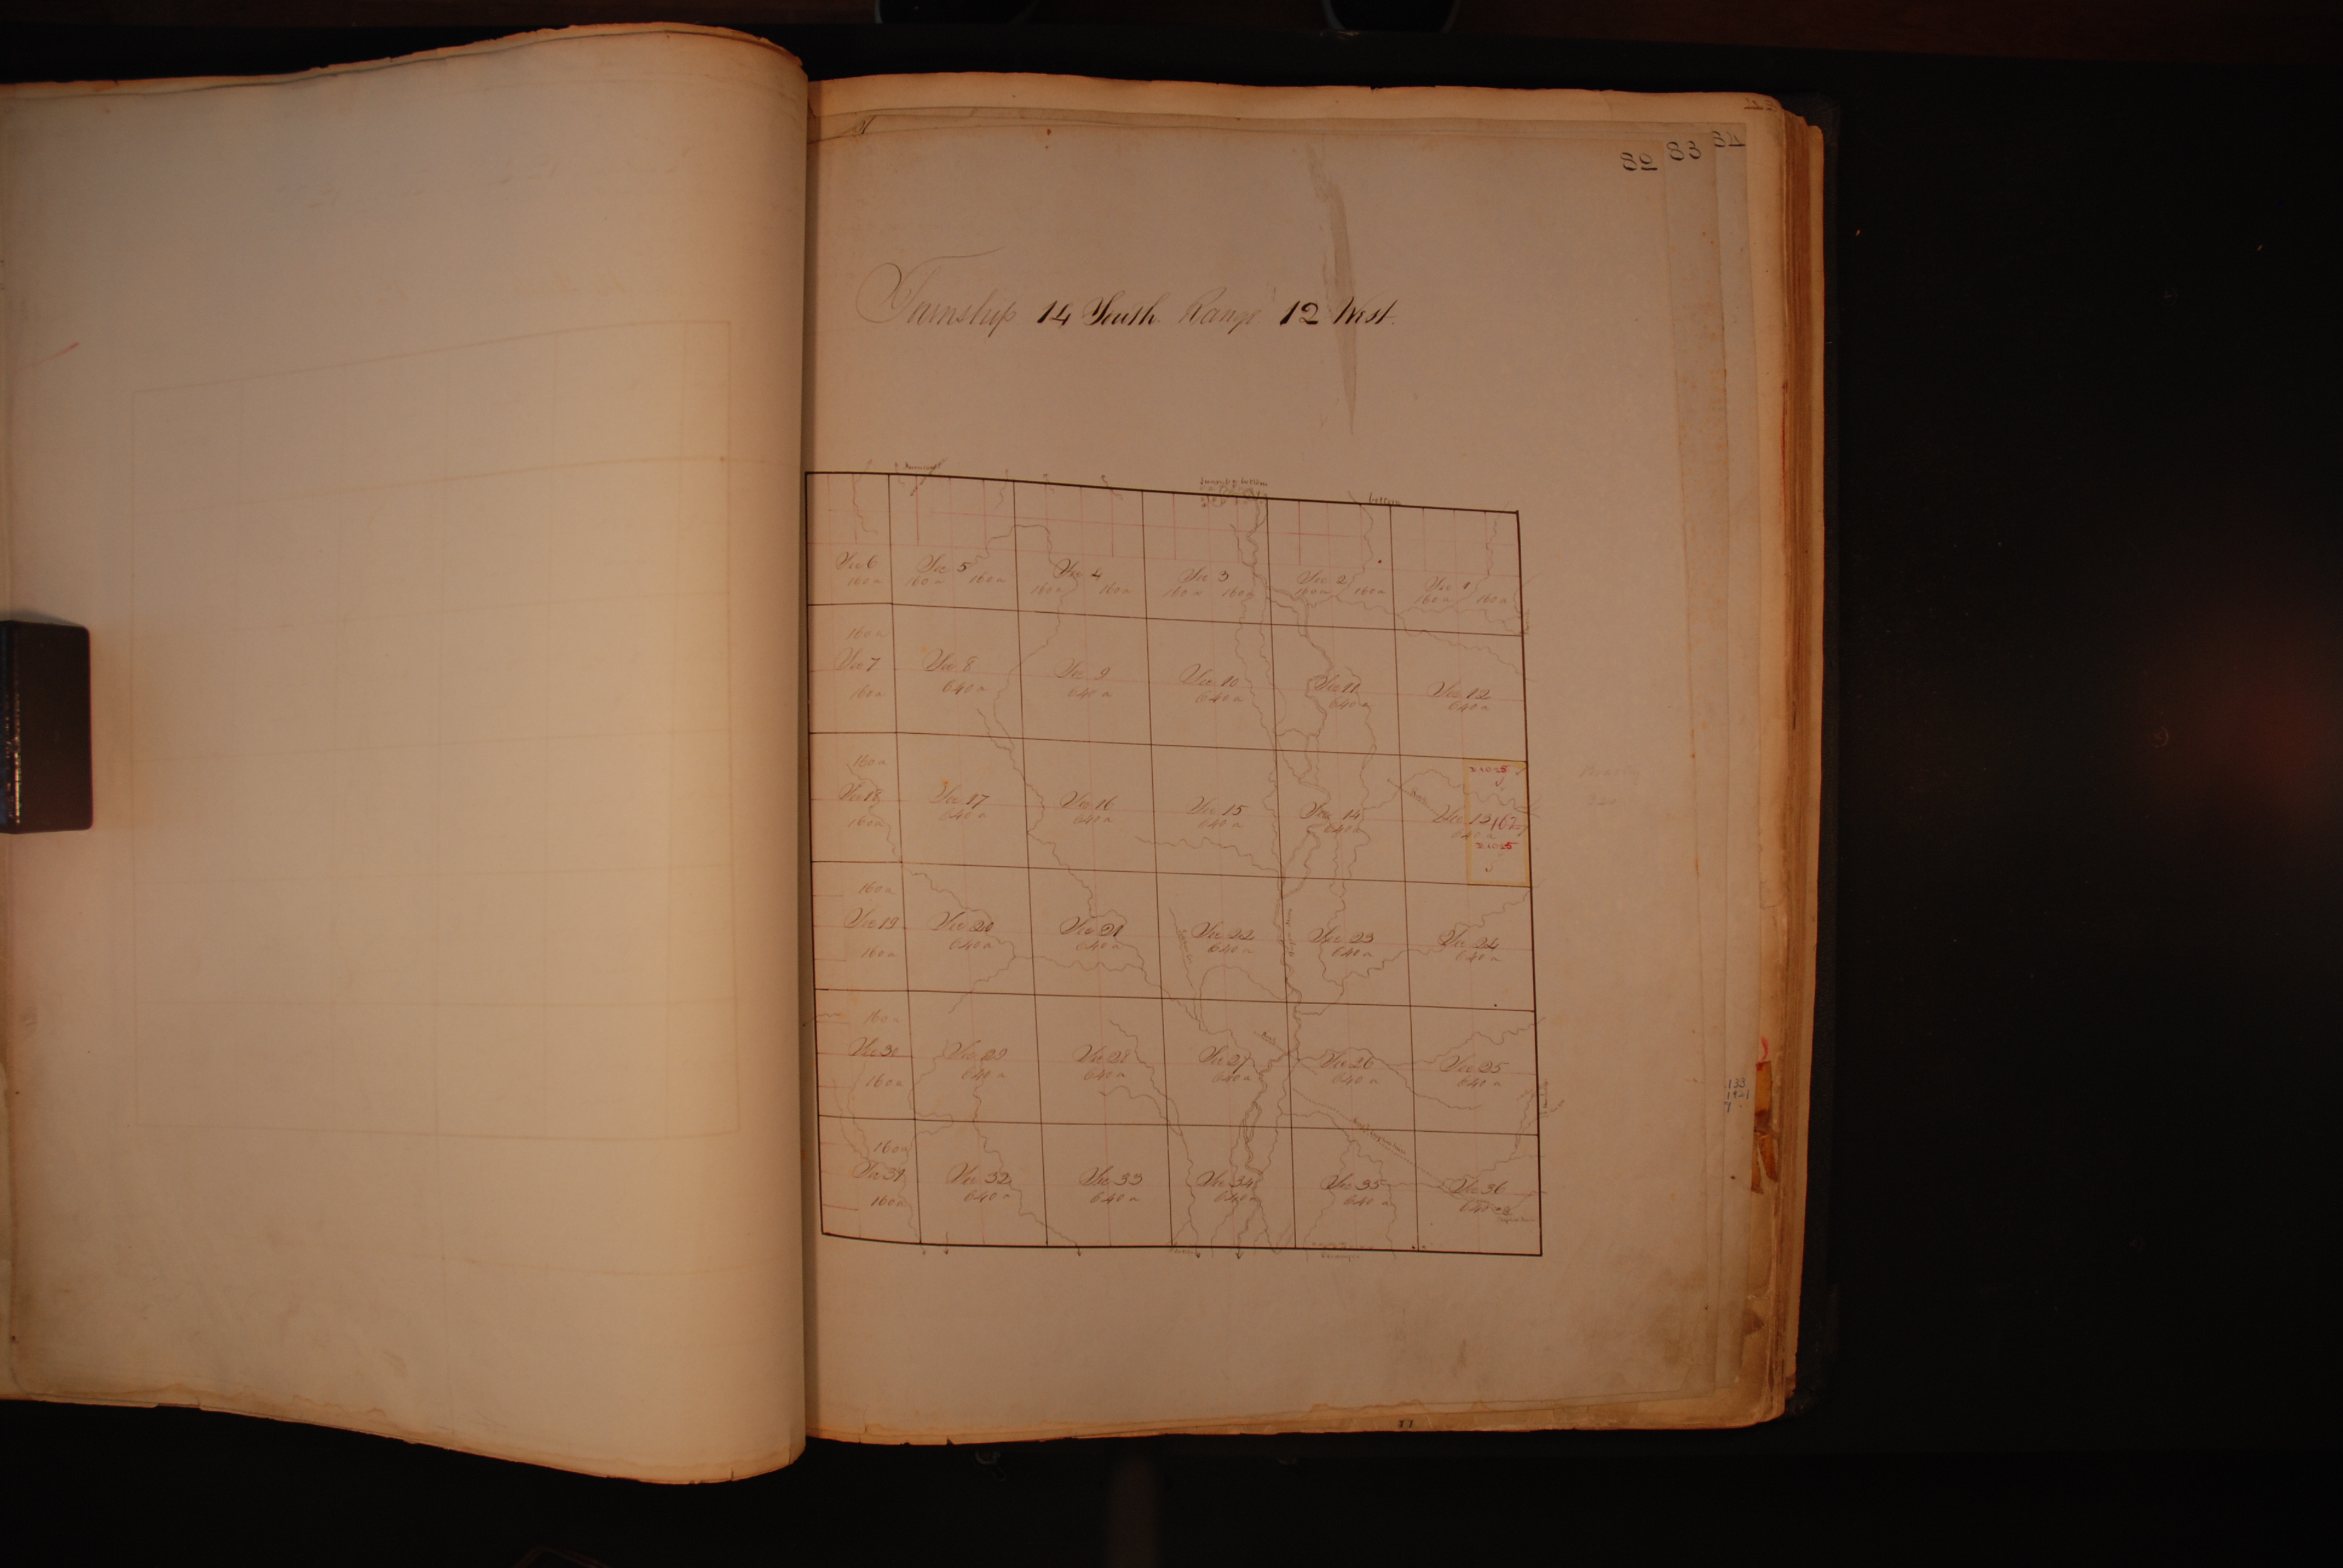 82 83 84
Township 14 South Range 12 West.
Sec 6 Sec 5 Sec 4 Sec 3 Sec 2 Sec 1
160 a 160 a 160 a 160 a 160 a 160 a 160 a 160 a 160 a 160 a 160 a
160 a
Sec 7 Sec 8 Sec 9 Sec 10 Sec 11 Sec 12
160 a 640 a 640 a 640 a 640 a 640 a
160 a
Sec 18 Sec 17 Sec 16 Sec 15 Sec 14 Sec 13
160 a 640 a 640 a 640 a 640 a 640 a
160 a
Sec 19 Sec 20 Sec 21 Sec 22 Sec 23 Sec 24
160 a 640 a 640 a 640 a 640 a 640 a
160 a
Sec 30 Sec 29 Sec 28 Sec 27 Sec 26 Sec 25
160 a 640 a 640 a 640 a 640 a 640 a
160 a
Sec 31 Sec 32 Sec 33 Sec 34 Sec 35 Sec 36
160 a 640 a 640 a 640 a 640 a 640 a